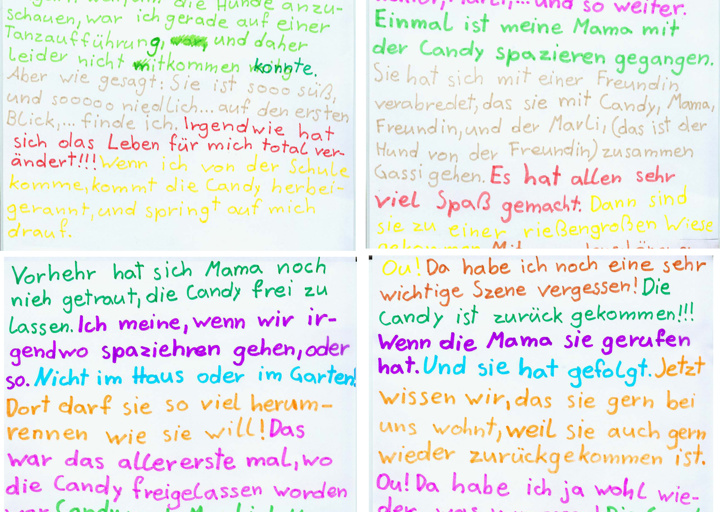 schauen, war ich gerade auf einer
Tanzaufführung, war, und daher
leider nicht mitkommen konnte.
Aber wie gesagt: Sie ist sooo süß,
und sooooo niedlich... auf den ersten
Blick,... finde ich. Irgendwie hat
sich das Leben für mich total ver-
ändert!!! Wenn ich von der Schule
komme, kommt die Candy herbei-
gerannt, und springt auf mich
drauf.
und so weiter.
Einmal ist meine Mama mit
der Candy spazieren gegangen.
Sie hat sich mit einer Freundin
verabredet, das sie mit Candy, Mama,
Freundin, und der Marli, (das ist der
Hund von der Freundin) zusammen
Gassi gehen. Es hat allen sehr
viel Spaß gemacht. Dann sind
sie zu einer rießengroßen Wiese
Vorhehr hat sich Mama noch
nieh getraut, die Candy frei zu
lassen. Ich meine, wenn wir ir-
gendwo spaziehren gehen, oder
so. Nicht im Haus oder im Garten!
Dort darf sie so viel herum-
rennen wie sie will! Das
war das allererste mal, wo
die Candy freigelassen worden
Ou! Da habe ich noch eine sehr
wichtige Szene vergessen! Die
Candy ist zurück gekommen!!!
Wenn die Mama sie gerufen
hat. Und sie hat gefolgt. Jetzt
wissen wir, das sie gern bei
uns wohnt, weil sie auch gern
wieder zurückgekommen ist.
Ou! Da habe ich ja wohl wie-